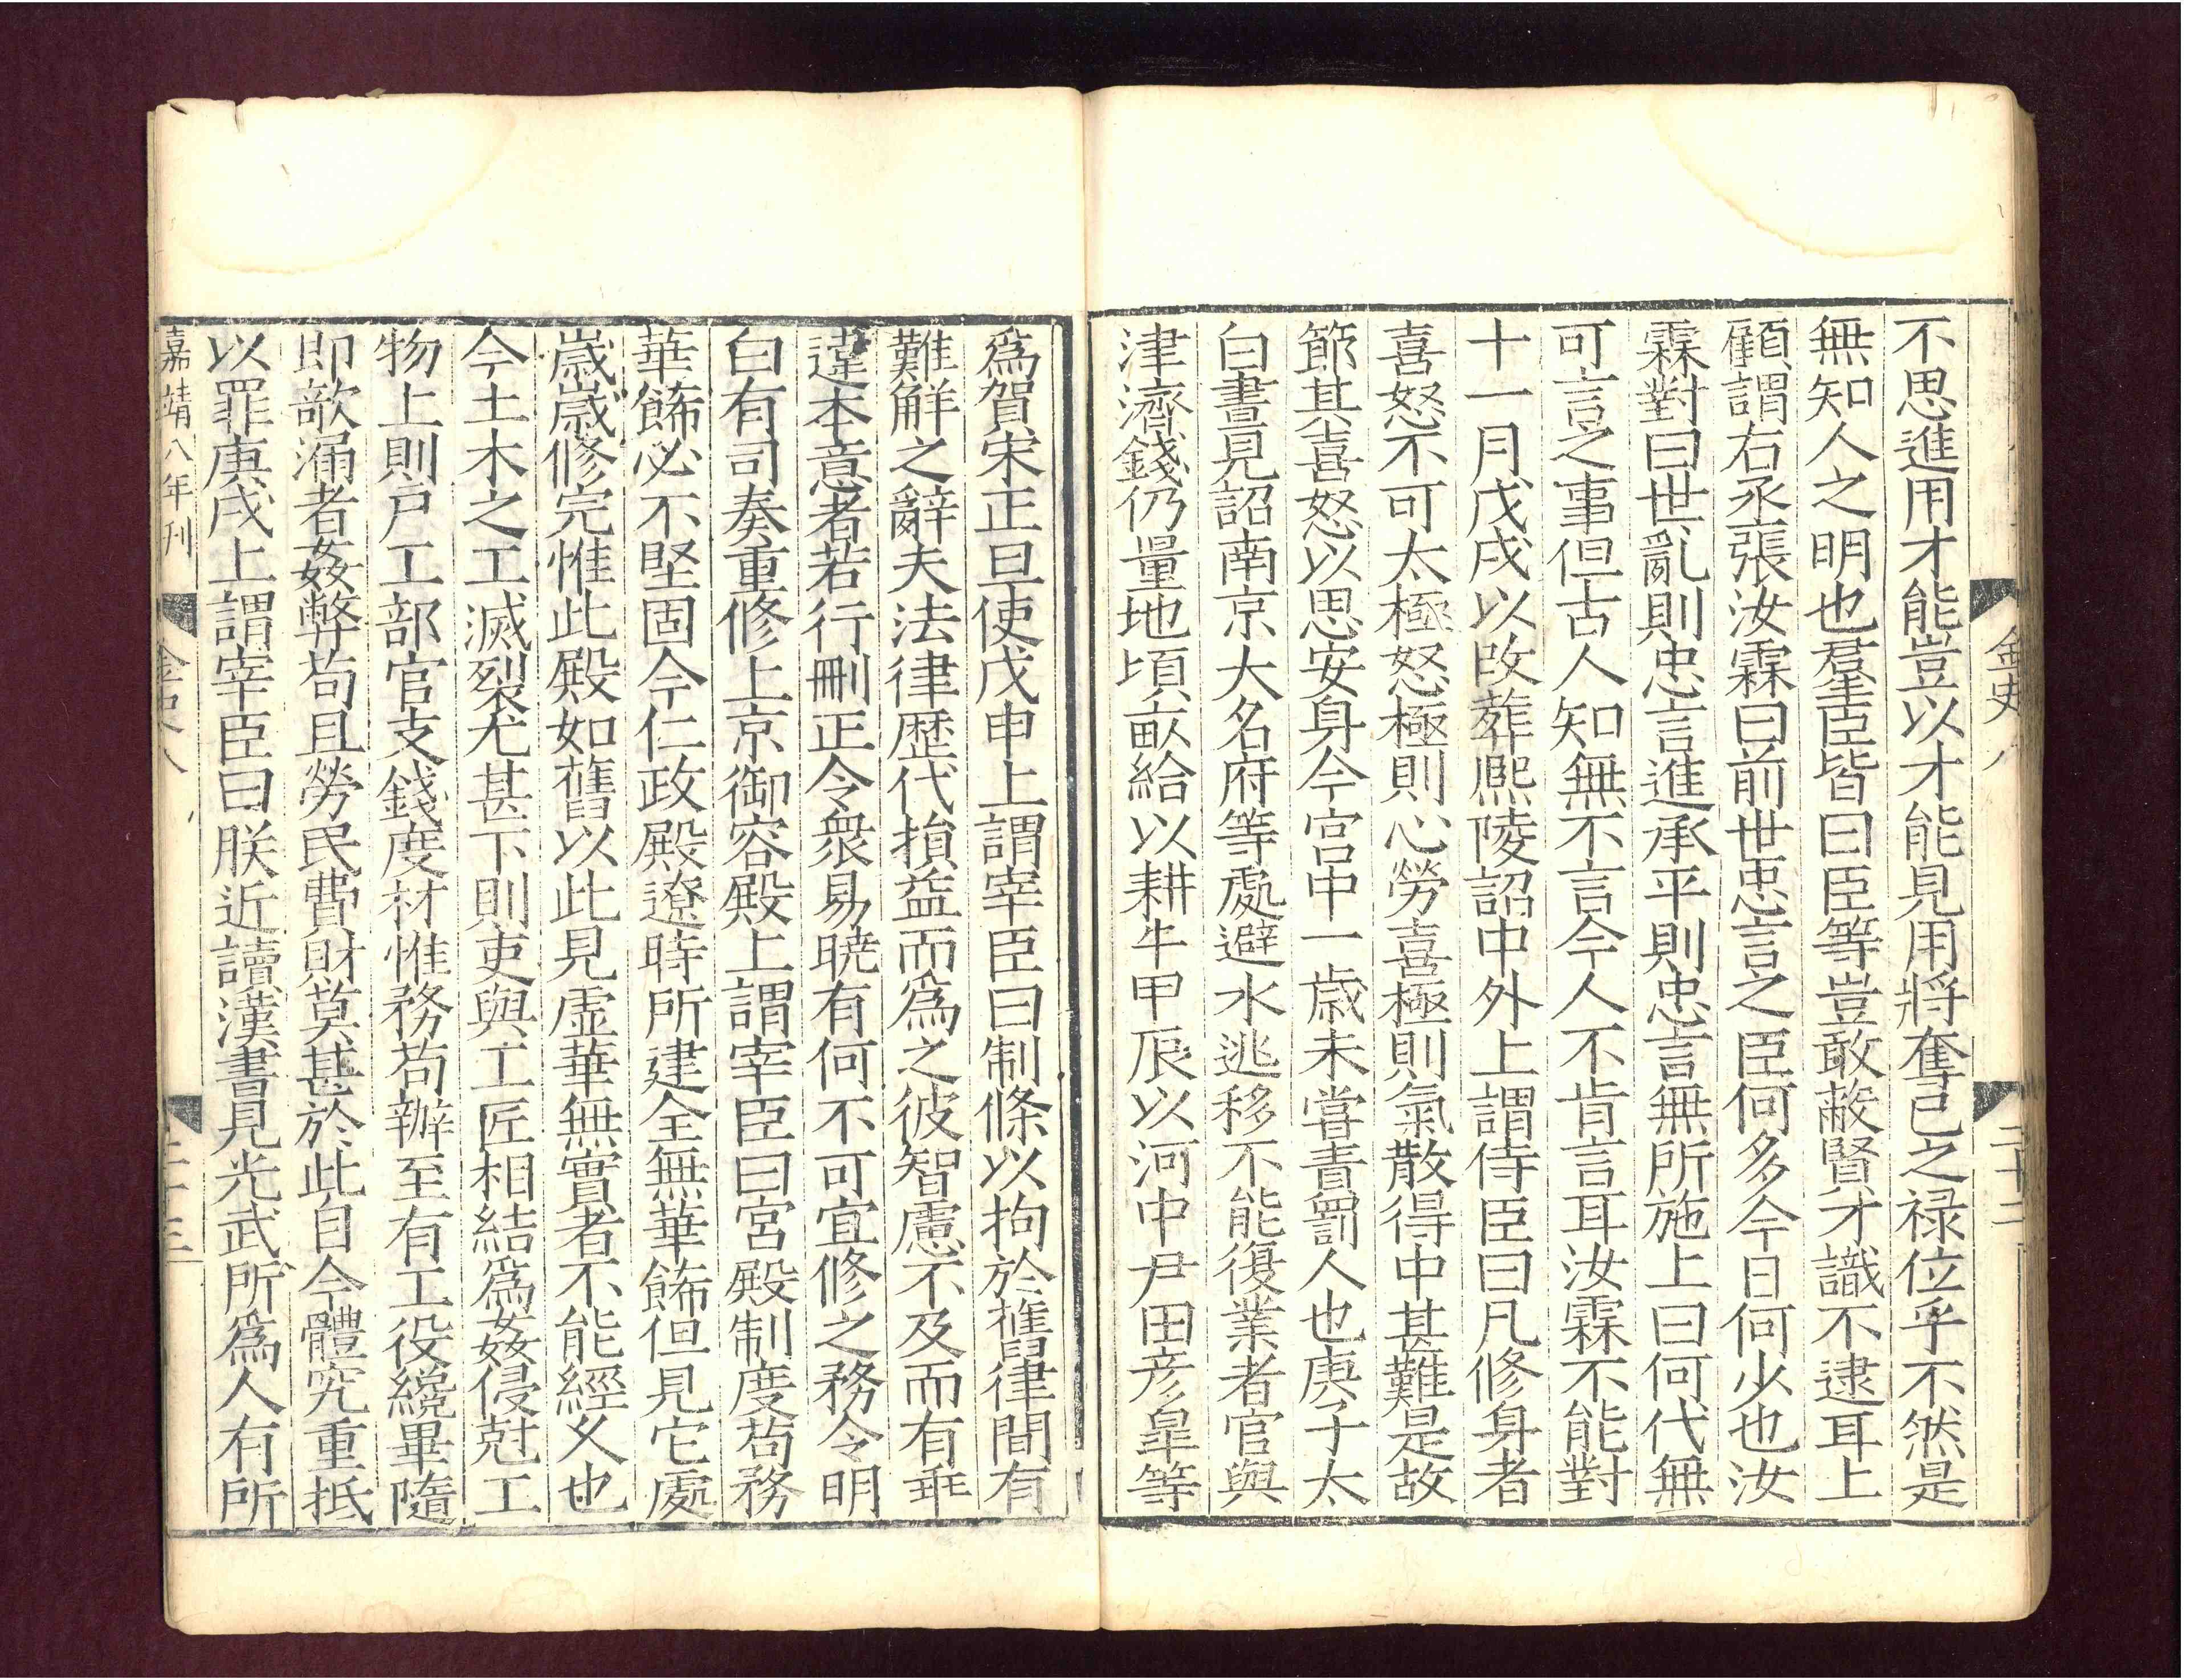 金史八
二十二
不思進用才能豈以才能見用將奪己之祿位乎不然是
無知人之明也羣臣皆曰臣等豈敢蔽賢才識不逮耳上
顧謂右丞張汝霖曰前世忠言之臣何多今日何少也汝
霖對曰世亂則忠言進承平則忠言無所施上曰何代無
可言之事但古人知無不言今人不肯言耳汝霖不能對
十一月戊戌以改葬熙陵詔中外上謂侍臣曰凡修身者
喜怒不可太極怒極則心勞喜極則氣散得中甚難是故
節其喜怒以思安身今宮中一歲未嘗責罰人也庚子太
白晝見詔南京大名府等處避水逃移不能復業者官與
津濟錢仍量地頃畝給以耕牛甲辰以河中尹田彦皐等
爲賀宋正旦使戊申上謂宰臣曰制條以拘於舊律間有
難解之辭夫法律歷代損益而爲之彼智慮不及而有乖
違本意者若行刪正令衆易曉有何不可宜修之務令明
白有司奏重修上京御容殿上謂宰臣曰宮殿制度苟務
華餙必不堅固今仁政殿遼時所建全無華餙但見它處
歲歲修完惟此殿如舊以此見虛華無實者不能經久也
今土木之工滅裂尤甚下則吏與工匠相結爲姦侵尅工
物上則戶工部官支錢度材惟務苟辦至有工役纔畢隨
即欹漏者姦弊苟且勞民費財莫甚於此自今體究重抵
以罪庚戌上謂宰臣曰朕近讀漢書見光武所爲人有所
嘉靖八年刊
金史八
二十三